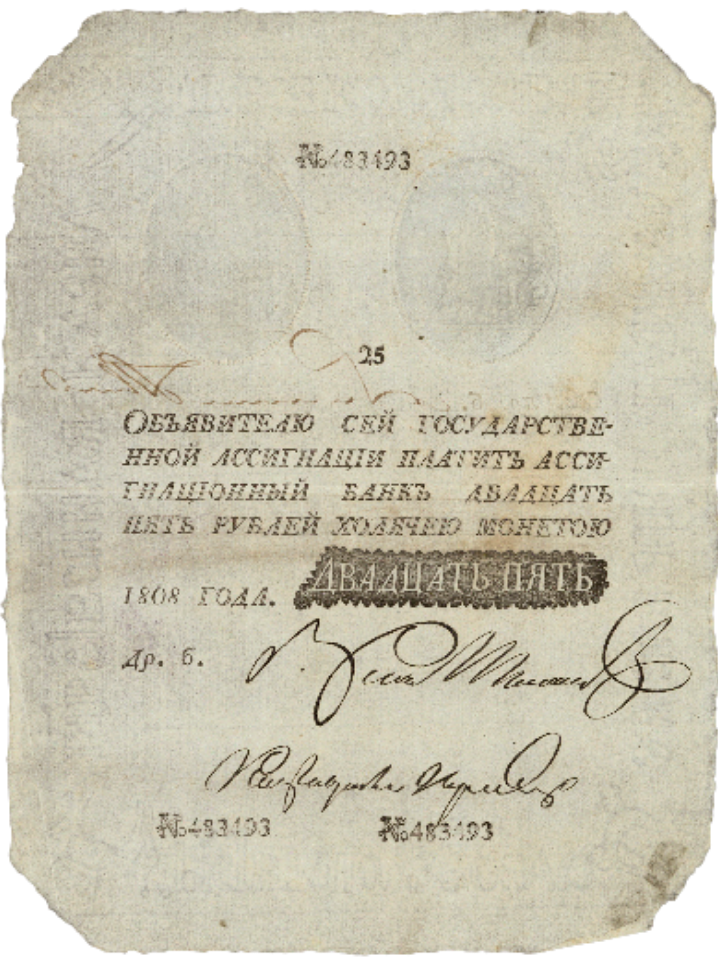 №483493
25
ОБЪЯВИТЕЛЮ СЕЙ ГОСУДАРСТВЕ-
ННОЙ АССИГНАЦІИ ПЛАТИТЪ АССИ-
ГНАЦІОННЫЙ БАНКЪ ДВАДЦАТЬ
ПЯТЬ РУБЛЕЙ ХОДЯЧЕЮ МОНЕТОЮ
1808 ГОДА. ДВАДЦАТЬ ПЯТЬ
др. б.
№483493 №483493